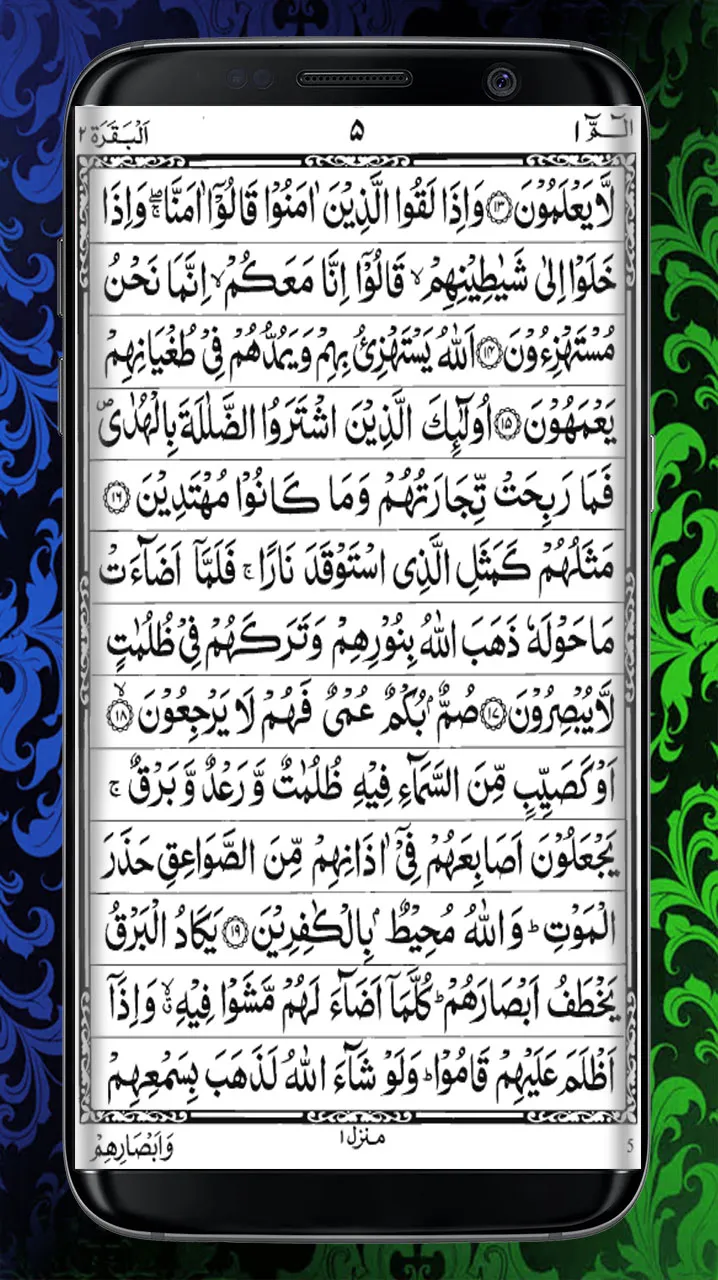 الٓمّٓ ۱ ۵ اَلْبَقَرَة ۲
لَّا يَعْلَمُوْنَ ۝۱۳ وَاِذَا لَقُوا الَّذِيْنَ اٰمَنُوْا قَالُوْٓا اٰمَنَّا ۖۚ وَاِذَا
خَلَوْا اِلٰى شَيٰطِيْنِهِمْ ۙ قَالُوْٓا اِنَّا مَعَكُمْ ۙ اِنَّمَا نَحْنُ
مُسْتَهْزِءُوْنَ ۝۱۴ اَللّٰهُ يَسْتَهْزِئُ بِهِمْ وَيَمُدُّهُمْ فِيْ طُغْيَانِهِمْ
يَعْمَهُوْنَ ۝۱۵ اُولٰٓئِكَ الَّذِيْنَ اشْتَرَوُا الضَّلٰلَةَ بِالْهُدٰى ۠
فَمَا رَبِحَتْ تِّجَارَتُهُمْ وَمَا كَانُوْا مُهْتَدِيْنَ ۝۱۶
مَثَلُهُمْ كَمَثَلِ الَّذِى اسْتَوْقَدَ نَارًا ۚ فَلَمَّآ اَضَآءَتْ
مَا حَوْلَهٗ ذَهَبَ اللّٰهُ بِنُوْرِهِمْ وَتَرَكَهُمْ فِيْ ظُلُمٰتٍ
لَّا يُبْصِرُوْنَ ۝۱۷ صُمٌّۢ بُكْمٌ عُمْىٌ فَهُمْ لَا يَرْجِعُوْنَ ۝۱۸ ۙ
اَوْ كَصَيِّبٍ مِّنَ السَّمَآءِ فِيْهِ ظُلُمٰتٌ وَّرَعْدٌ وَّبَرْقٌ ۚ
يَجْعَلُوْنَ اَصَابِعَهُمْ فِيْٓ اٰذَانِهِمْ مِّنَ الصَّوَاعِقِ حَذَرَ
الْمَوْتِ ؕ وَاللّٰهُ مُحِيْطٌۢ بِالْكٰفِرِيْنَ ۝۱۹ يَكَادُ الْبَرْقُ
يَخْطَفُ اَبْصَارَهُمْ ؕ كُلَّمَآ اَضَآءَ لَهُمْ مَّشَوْا فِيْهِ ۙۗ وَاِذَآ
اَظْلَمَ عَلَيْهِمْ قَامُوْا ؕ وَلَوْ شَآءَ اللّٰهُ لَذَهَبَ بِسَمْعِهِمْ
منزل ۱
وَاَبْصَارِهِمْ 5